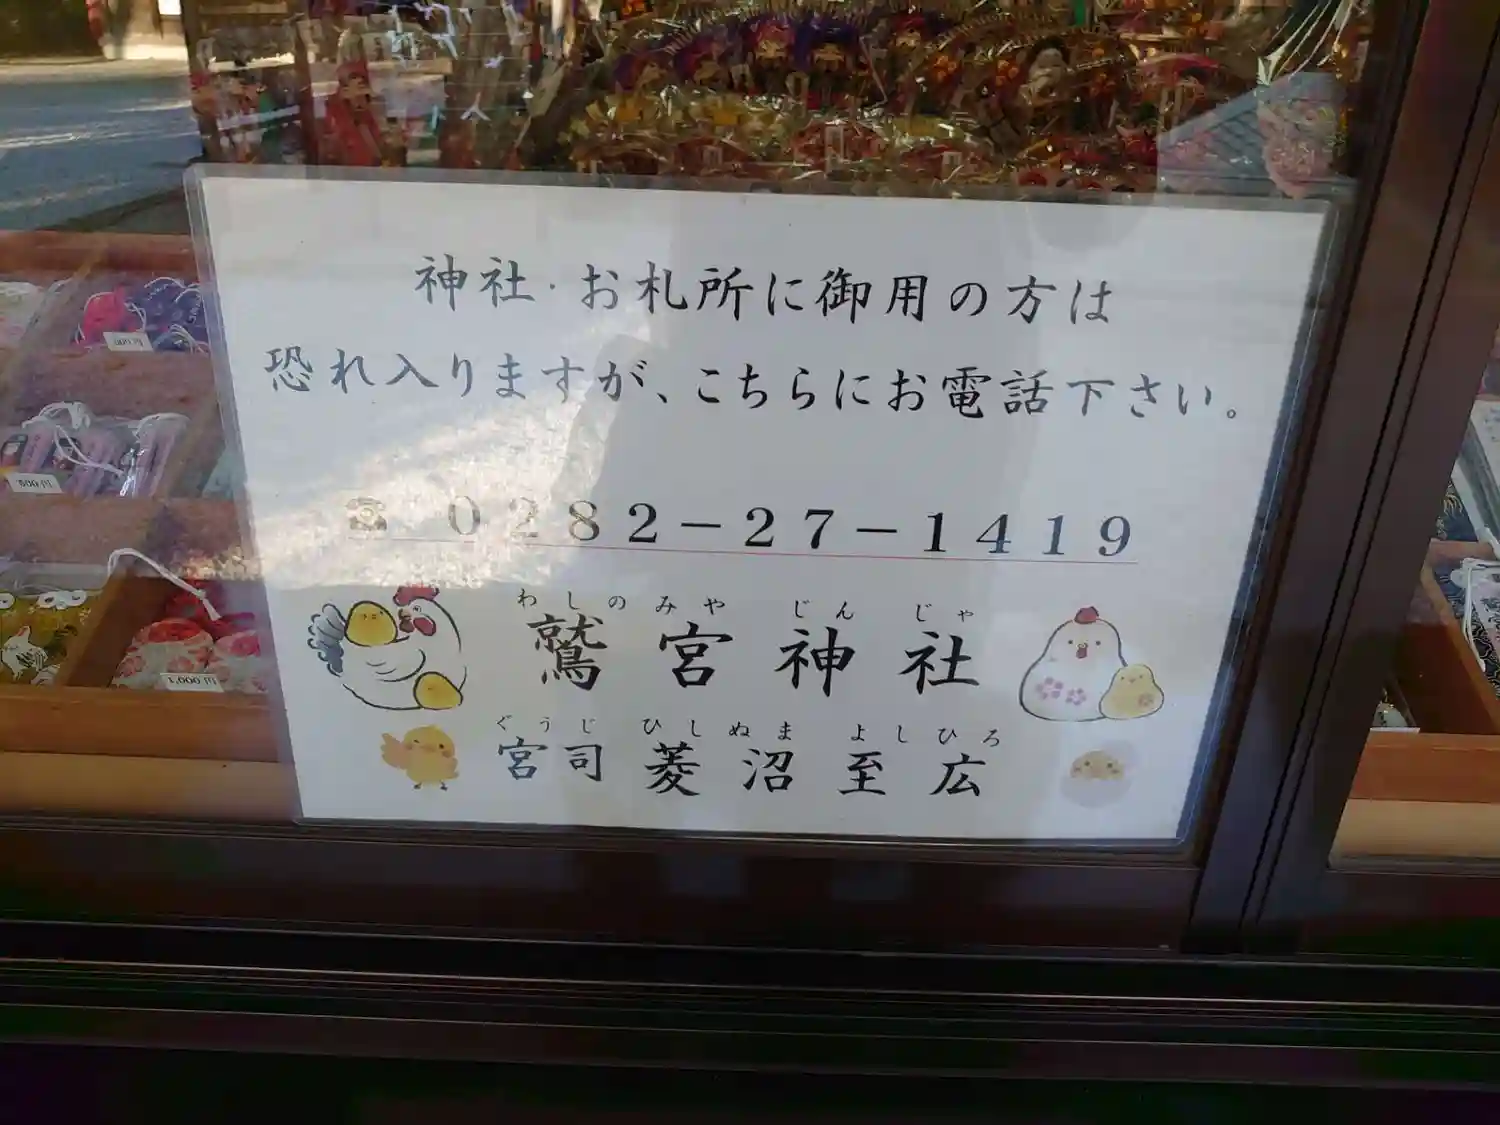 神社・お札所に御用の方は
恐れ入りますが、こちらにお電話下さい。
☎ 0282-27-1419
わしのみや じんじゃ
鷲宮神社
ぐうじ ひしぬま よしひろ
宮司 菱沼 至広
500円
1,000円